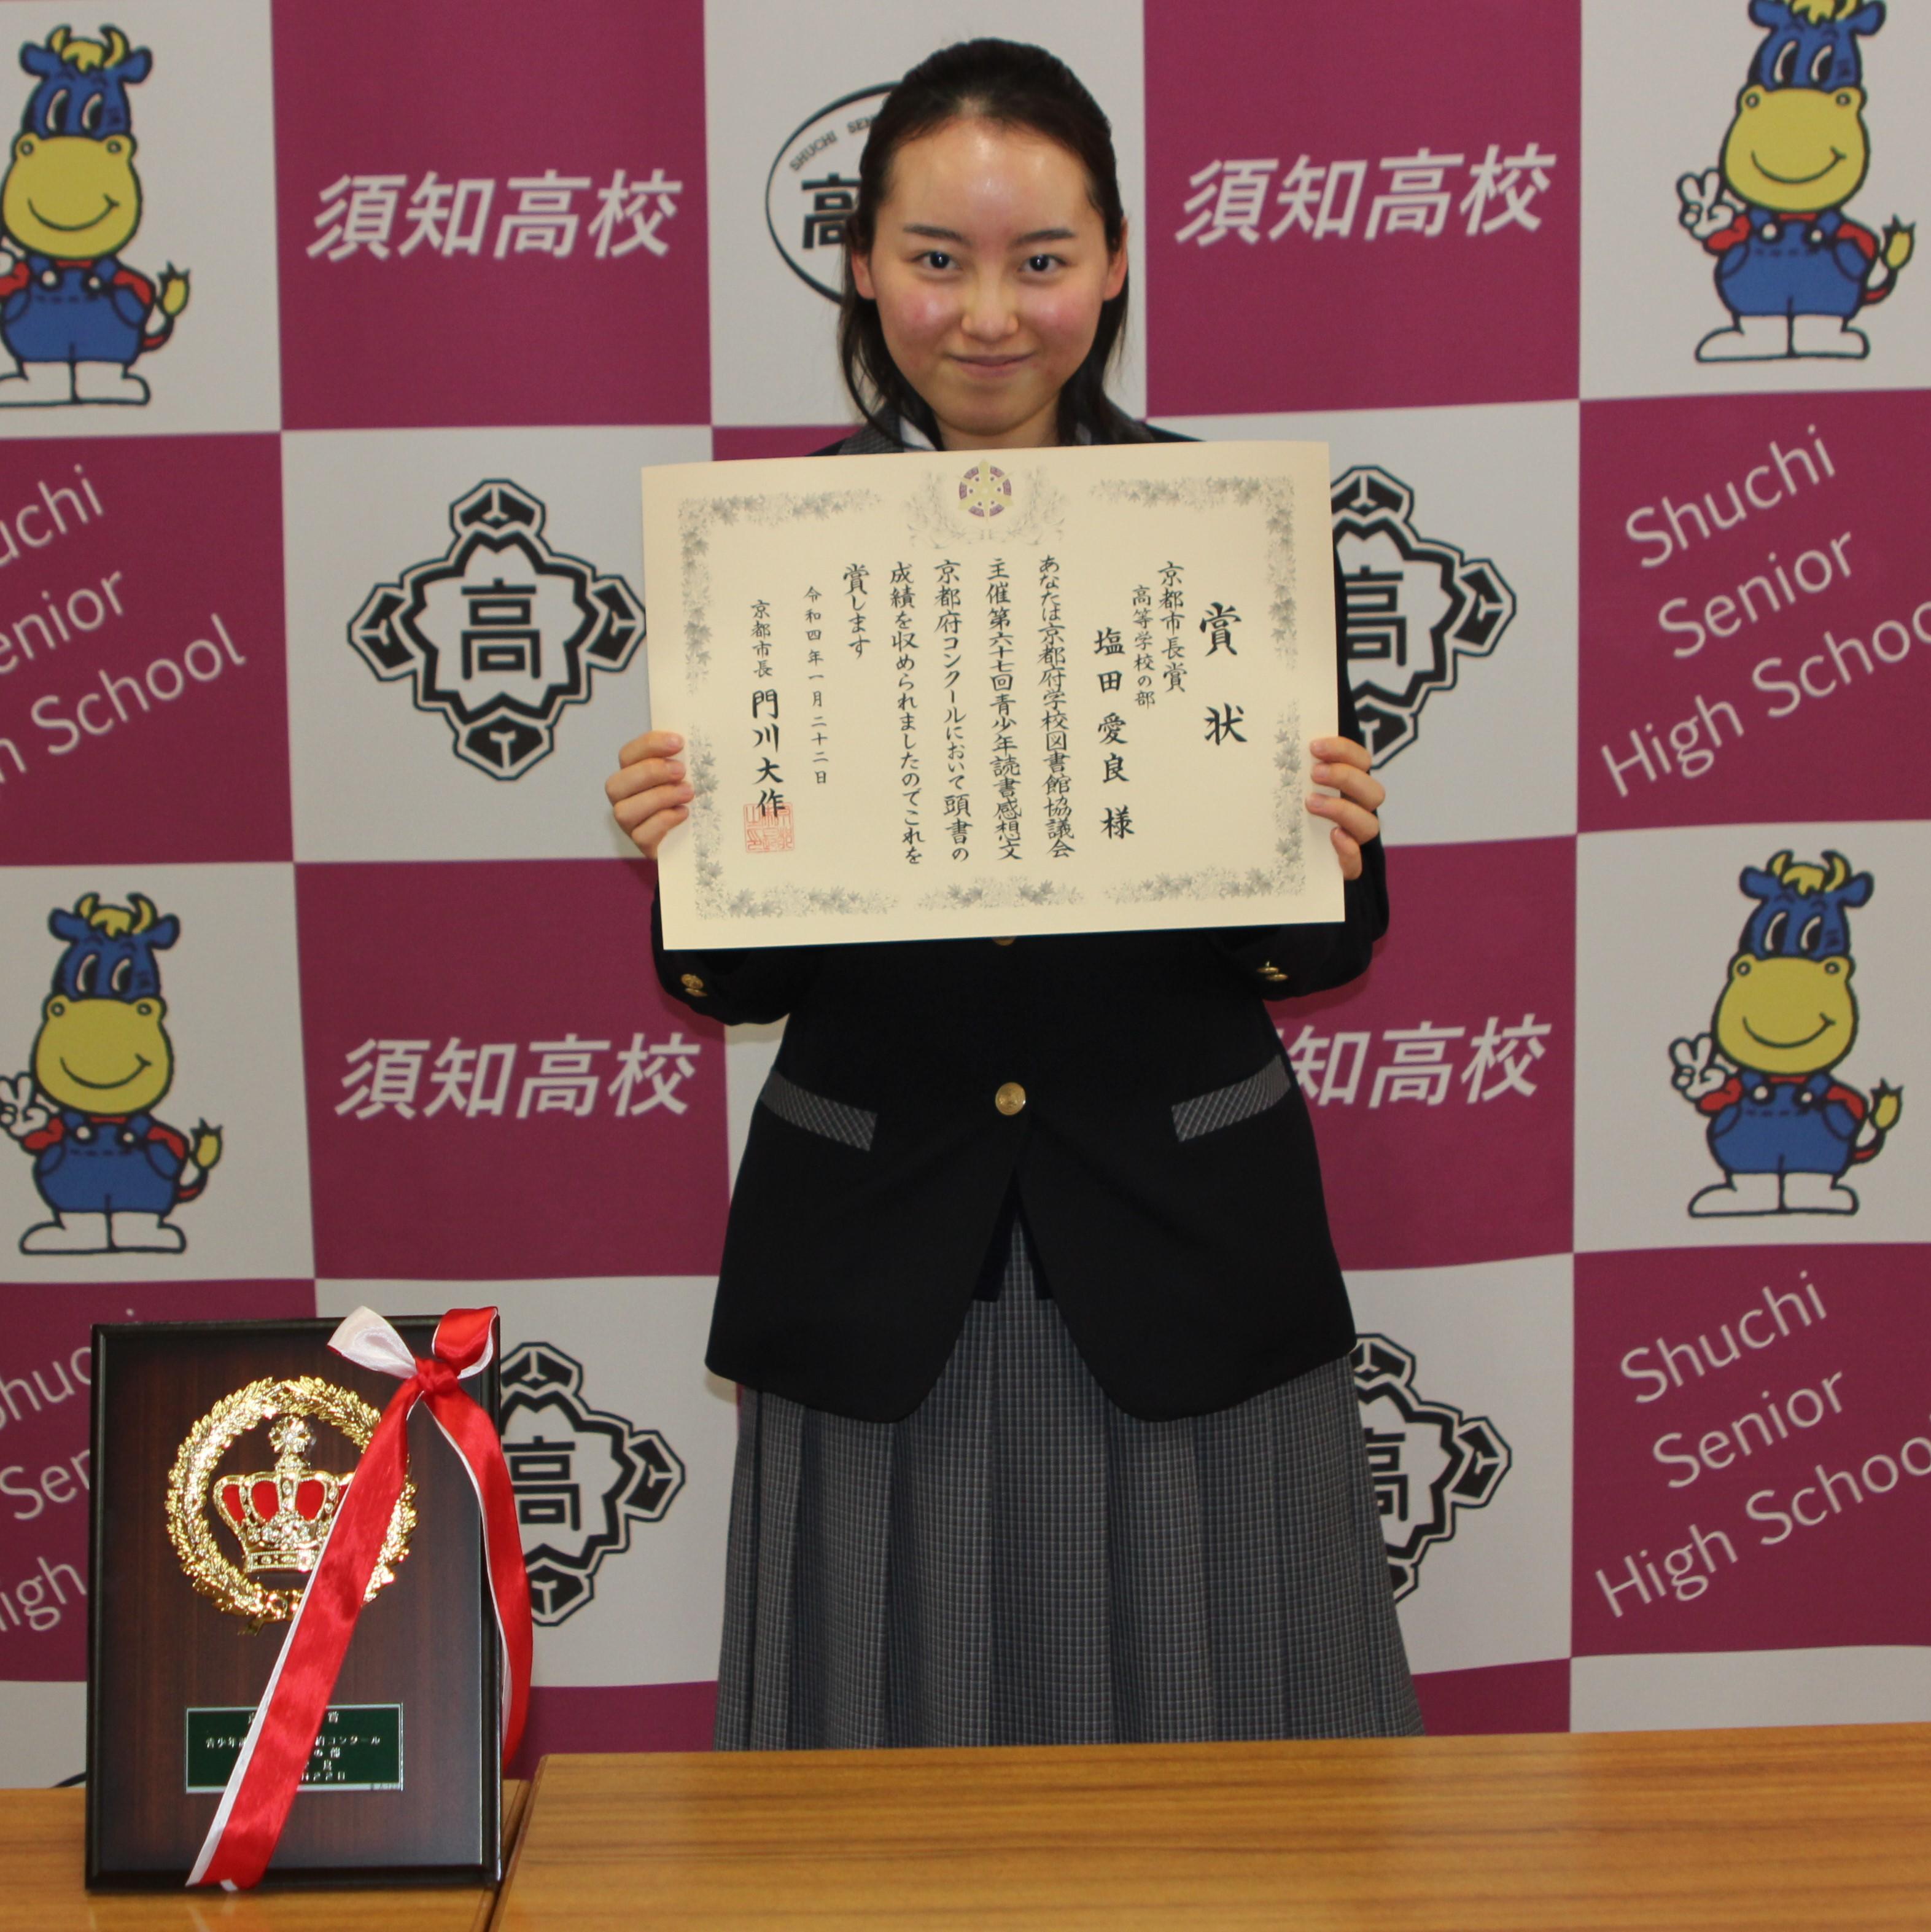 須知高校
SHUCHI SEN
高
須知高校
Shuchi
Senior
High School
高
高
Shuchi
Senior
High School
賞状
京都市長賞
高等学校の部
塩田愛良様
あなたは京都府学校図書館協議会
主催第六十七回青少年読書感想文
京都府コンクールにおいて頭書の
成績を収められましたのでこれを
賞します
令和四年一月二十二日
京都市長 門川大作
須知高校
知高校
高
高
Shuchi
Senior
High School
賞
青少年 コンクール
の部
良
月22日